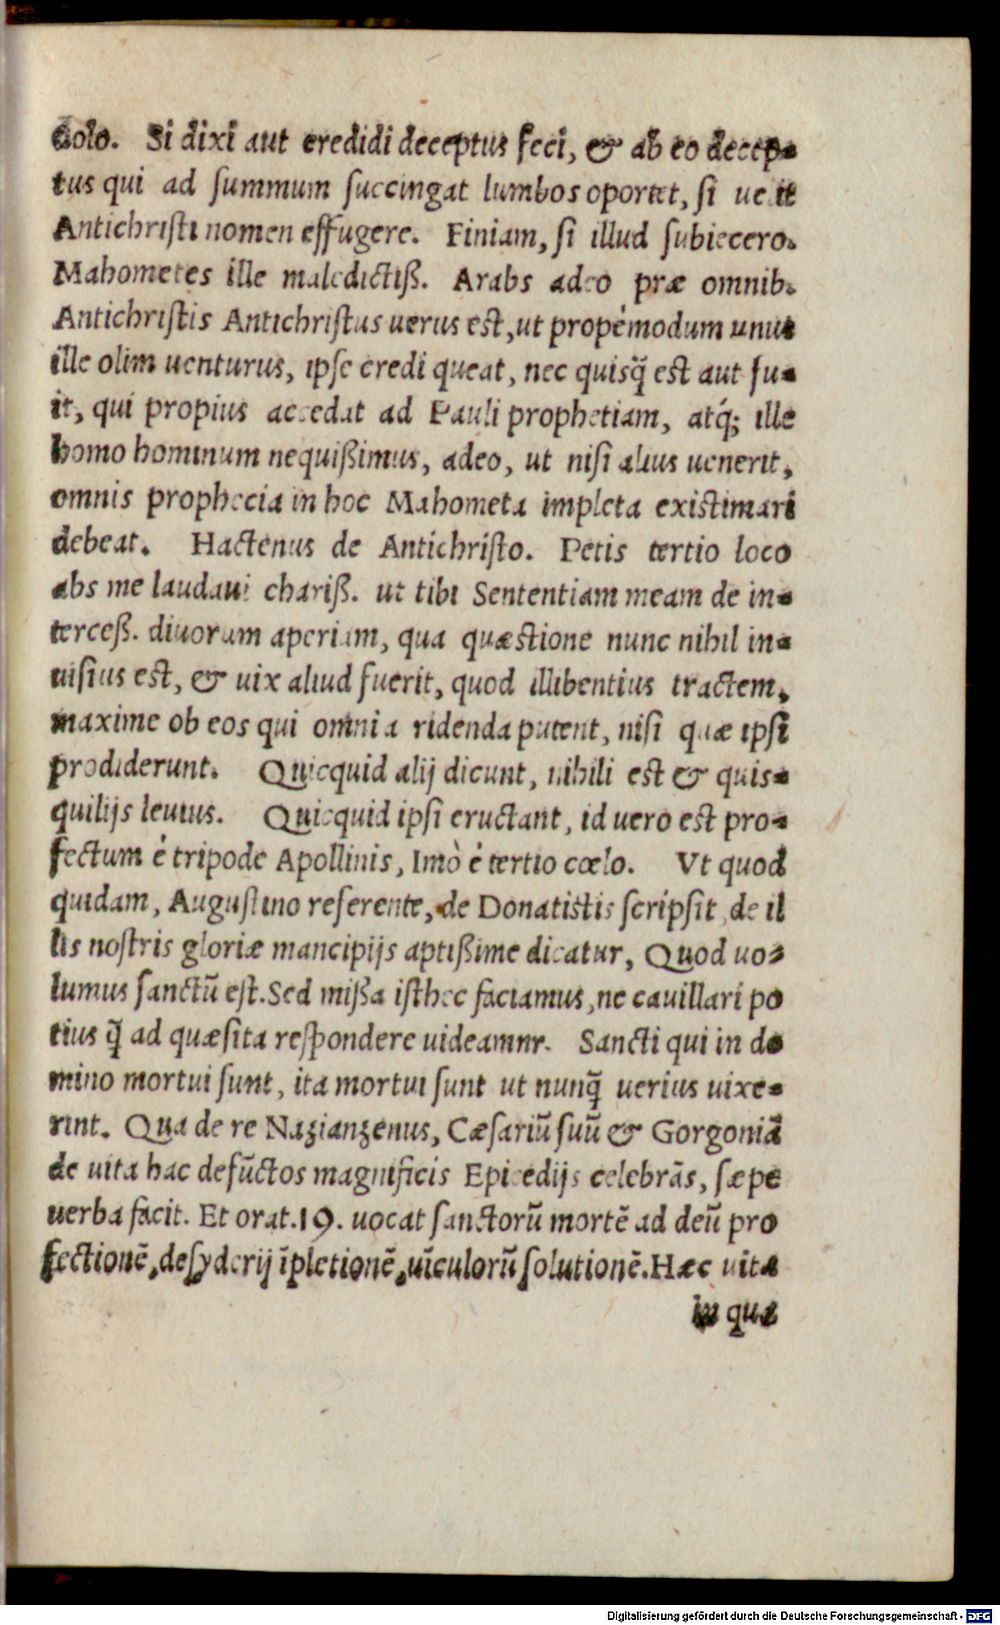 Colo. Si dixi aut credidi deceptus feci, & ab eo decep-
tus qui ad ſummum ſuccingat lumbos oportet, ſi uelit
Antichriſti nomen effugere. Finiam, ſi illud ſubiecero.
Mahometes ille maledictiß. Arabs adeo præ omnib.
Antichriſtis Antichriſtus uerus est, ut propémodum unus
ille olim uenturus, ipſe credi queat, nec quisq̃ est aut fu-
it, qui propius accedat ad Pauli prophetiam, atq́; ille
homo hominum nequißimus, adeo, ut niſi alius uenerit,
omnis prophecia in hoc Mahometa impleta existimari
debeat. Hactenus de Antichriſto. Petis tertio loco
abs me laudaui chariß. ut tibi Sententiam meam de in-
terceß. diuorum aperiam, qua quæstione nunc nihil in-
uiſius est, & uix aliud fuerit, quod illibentius tractem,
maxime ob eos qui omnia ridenda putent, niſi quæ ipſi
prodiderunt. Quicquid alij dicunt, nihili est & quis-
quilijs leuius. Quicquid ipſi eructant, id uero est pro-
fectum é tripode Apollinis, Imò é tertio cœlo. Vt quod
quidam, Auguſtino referente, de Donatistis ſcripſit, de il
lis noſtris gloriæ mancipijs aptißime dicatur, Quod uo-
lumus ſanctũ eſt. Sed mißa iſthec faciamus, ne cauillari po
tius q̃ ad quæſita reſpondere uideamnr. Sancti qui in do
mino mortui ſunt, ita mortui ſunt ut nunq̃ uerius uixe-
rint. Qua de re Nazianzenus, Cæſariũ ſuũ & Gorgoniã
de uita hac defũctos magnificis Epicedijs celebrãs, ſæpe
uerba facit. Et orat. 19. uocat ſanctorũ mortẽ ad deũ pro
fectionẽ, deſyderij ĩpletionẽ, uĩculorũ ſolutionẽ. Hæc uita
in qua
Digitalisierung gefördert durch die Deutsche Forschungsgemeinschaft - DFG